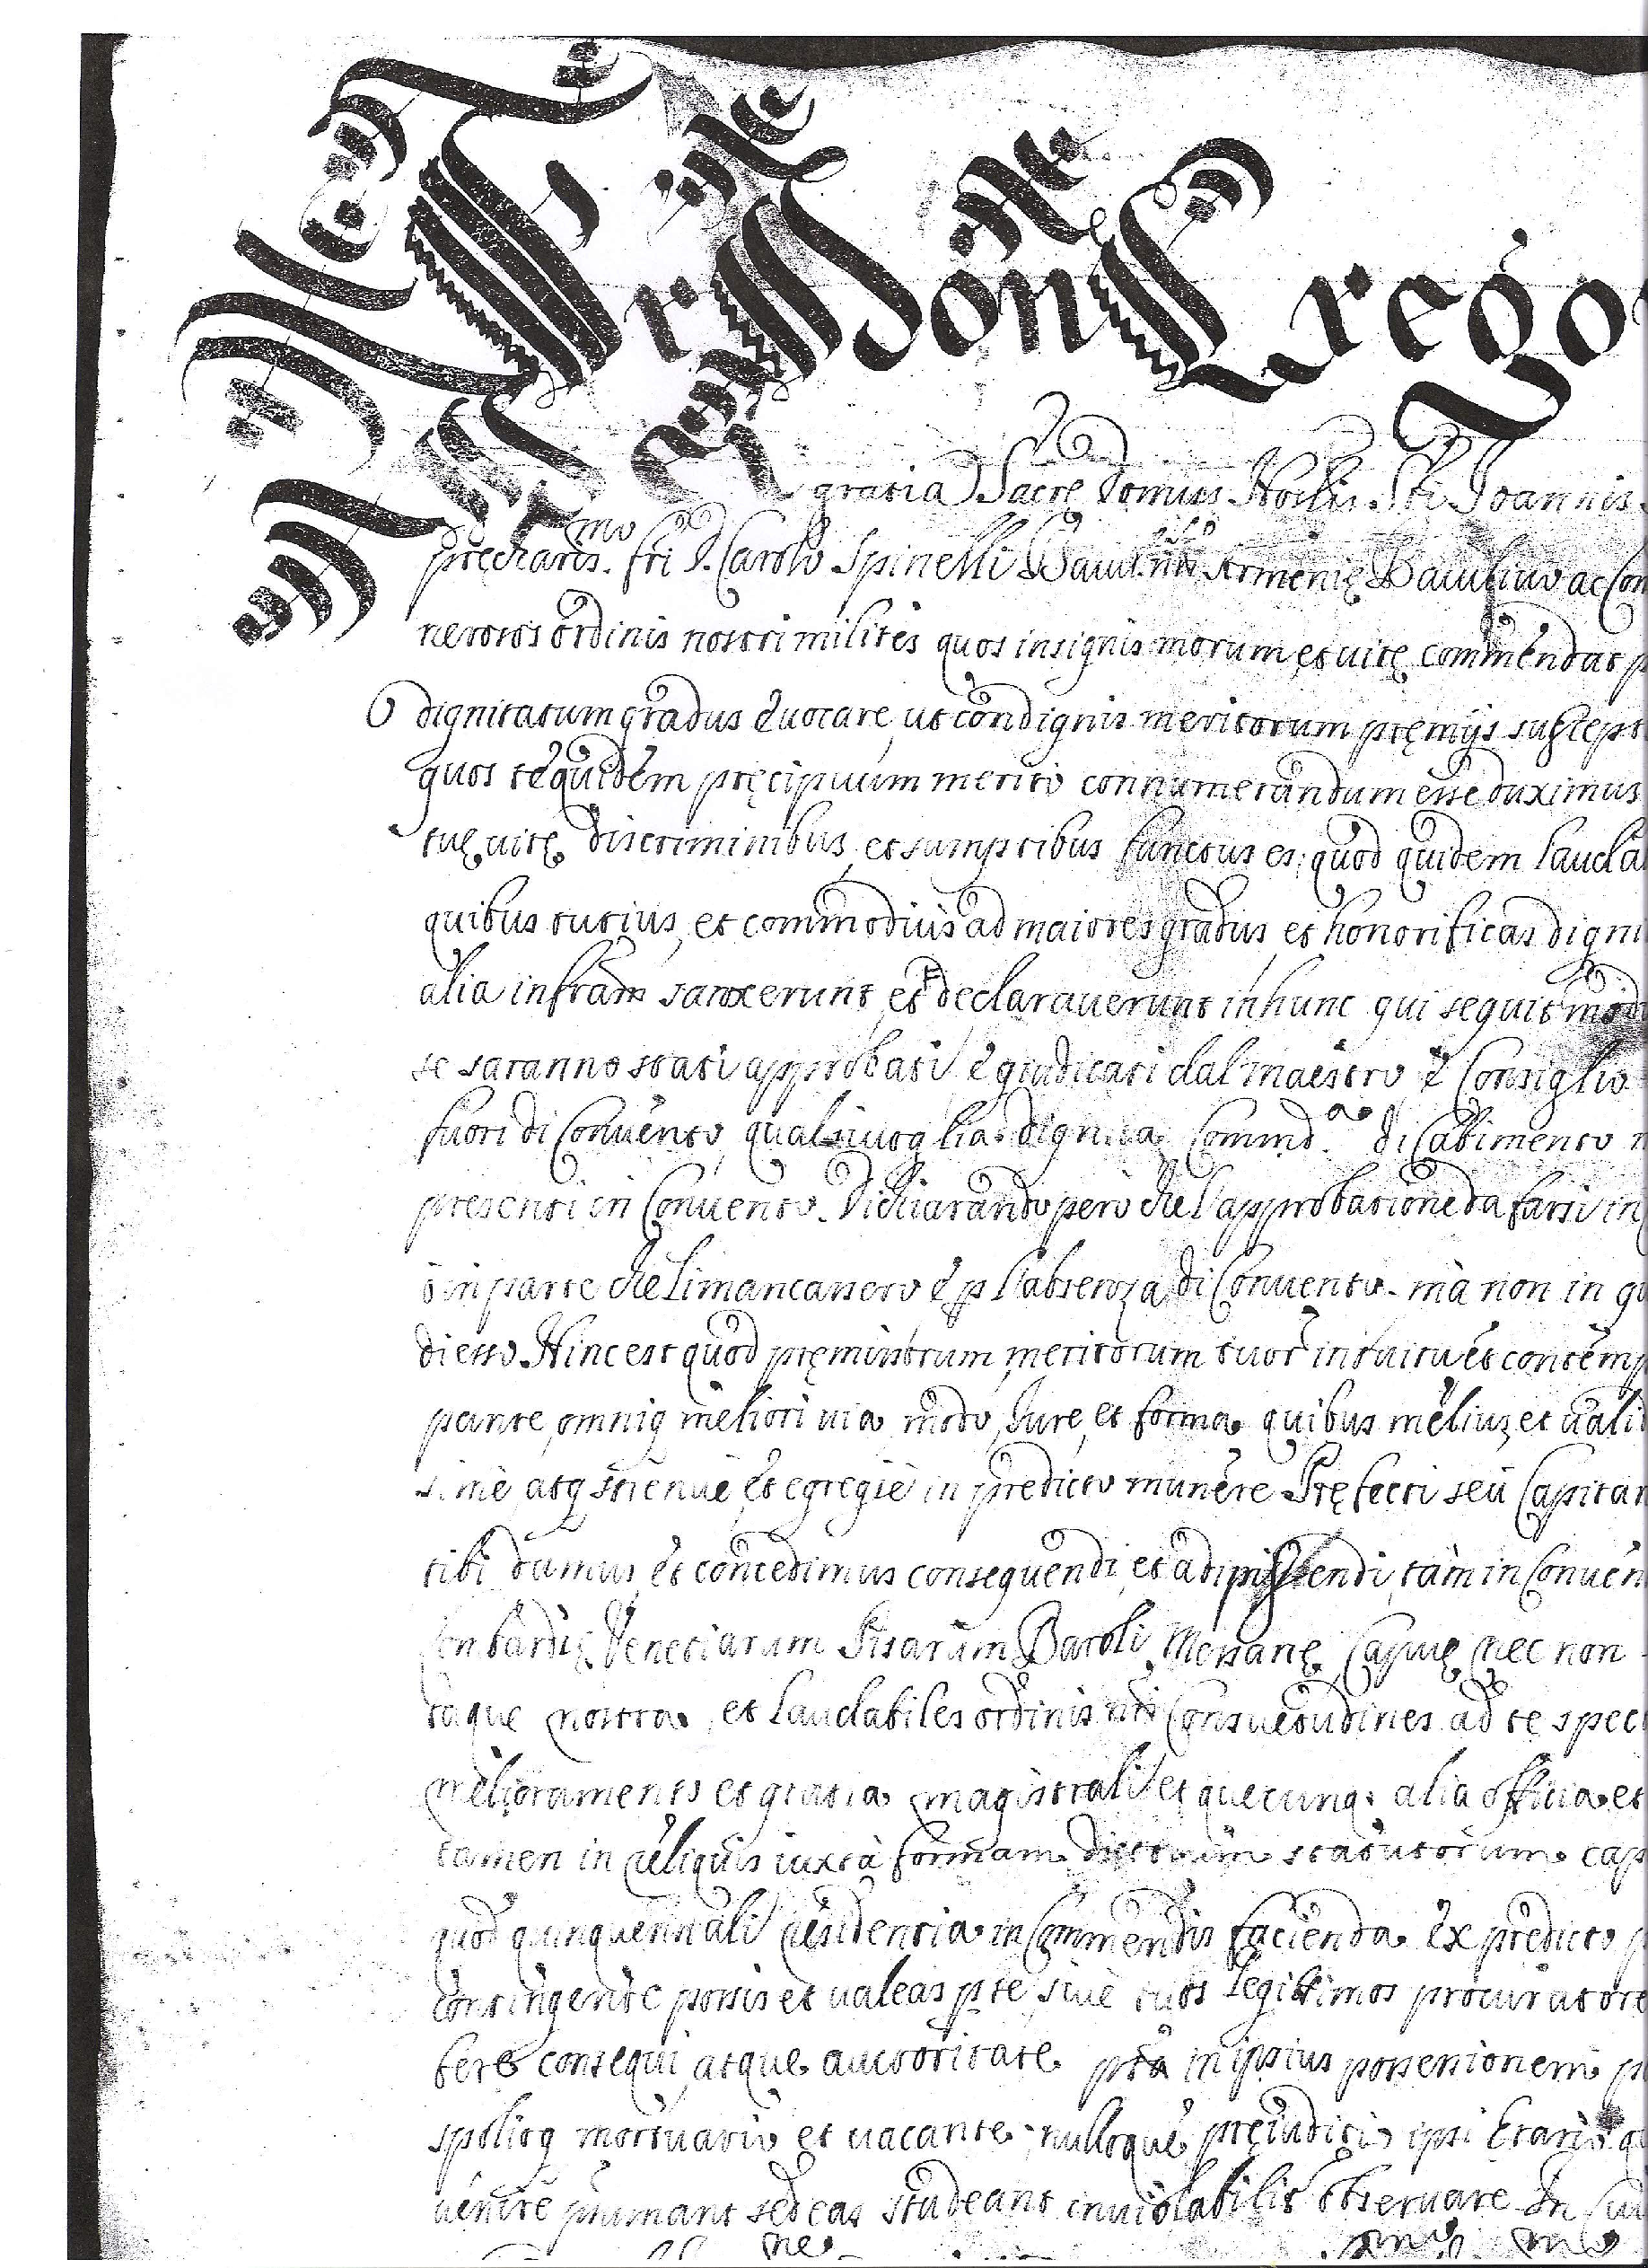 Fr Don Grego
gratia Sacrę Domus Hoslis Sti Joannis
prechariss.mo fri D. Carolo Spinelli Armenię Baiuliuo ac Com
nerosos ordinis nostri milites quos insignis morum, et uitę commendat p
dignitatum gradus euocare, ut condignis meritorum pręmijs suscept
quos te quidem pręcipuum merito connumerandum esse duximus
tuę uitę discriminibus, et sumptibus functus es; quod quidem lauda
quibus tutius, et commodius ad maiores gradus, et honorificas digni
alia infram sanxerunt, et declarauerunt in hunc qui sequit mod
se saranno stati approbati, e giudicati dal maestro e Consiglio
fuori di Conuento, qualsiuoglia dignita, Commd.ao di Cabimento n
presenti in Conuento. Dichiarando però che l'approbatione da farsi in
ò in parte che li mancassero e p l'absenza di Conuento. mà non in qu
di esso. Hinc est quod pręmissorum, meritorum tuor intuitu et contemp
pante, omniq meliori uia modo, Jure, et forma, quibus melius, et uali
sime atq strenuè, et egregiè in predicto munere Pręfecti seù Capitan
tibi damus, et concedimus consequendi, et adipiscendi, tàm in Conuen
Lonbardię, Venetiarum Pisarum Baroli, Messanę, Capuę, nec non
taque nostra, et laudabiles ordinis nri Consuetudines ad te spect
melioramentis et gratia magistrali et quecunq alia officia et
tamen in reliquis iuxtà formam dictorum statutorum cap
quod quinquennali residentia in Commendis facienda ex predicto p
contingente possis et ualeas p te, siuè tuos legittimos procuratore
fere consequi, atque auctoritate pta in ipsius possessionem p
spolioq mortuario et uacante, nulloque pręiudicio ipsi Erario q
uenire presumant sed eas studeant inuiolabilit obseruare In Cui